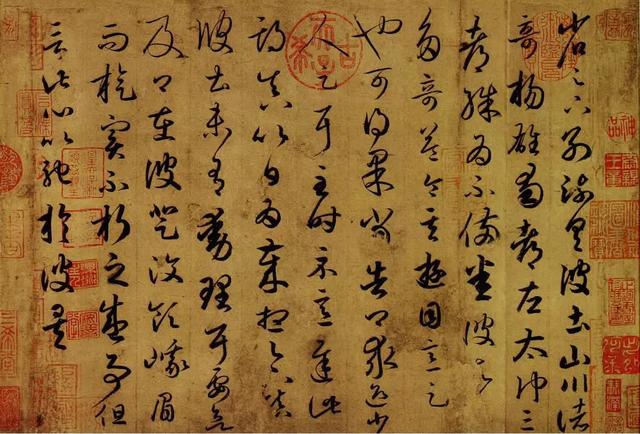 省足下別疏具彼土山川諸
奇楊雄蜀都左太冲三
都殊為不備悉彼故為
多奇益令其遊目意足
也可得果當告卿求迎少
人足耳至時示意遲此
期真以日為歲想足下鎮
彼土未有動理耳要欲
及卿在彼登汶領峨眉
而旋實不朽之盛事但
言此心以馳於彼矣
古希天子